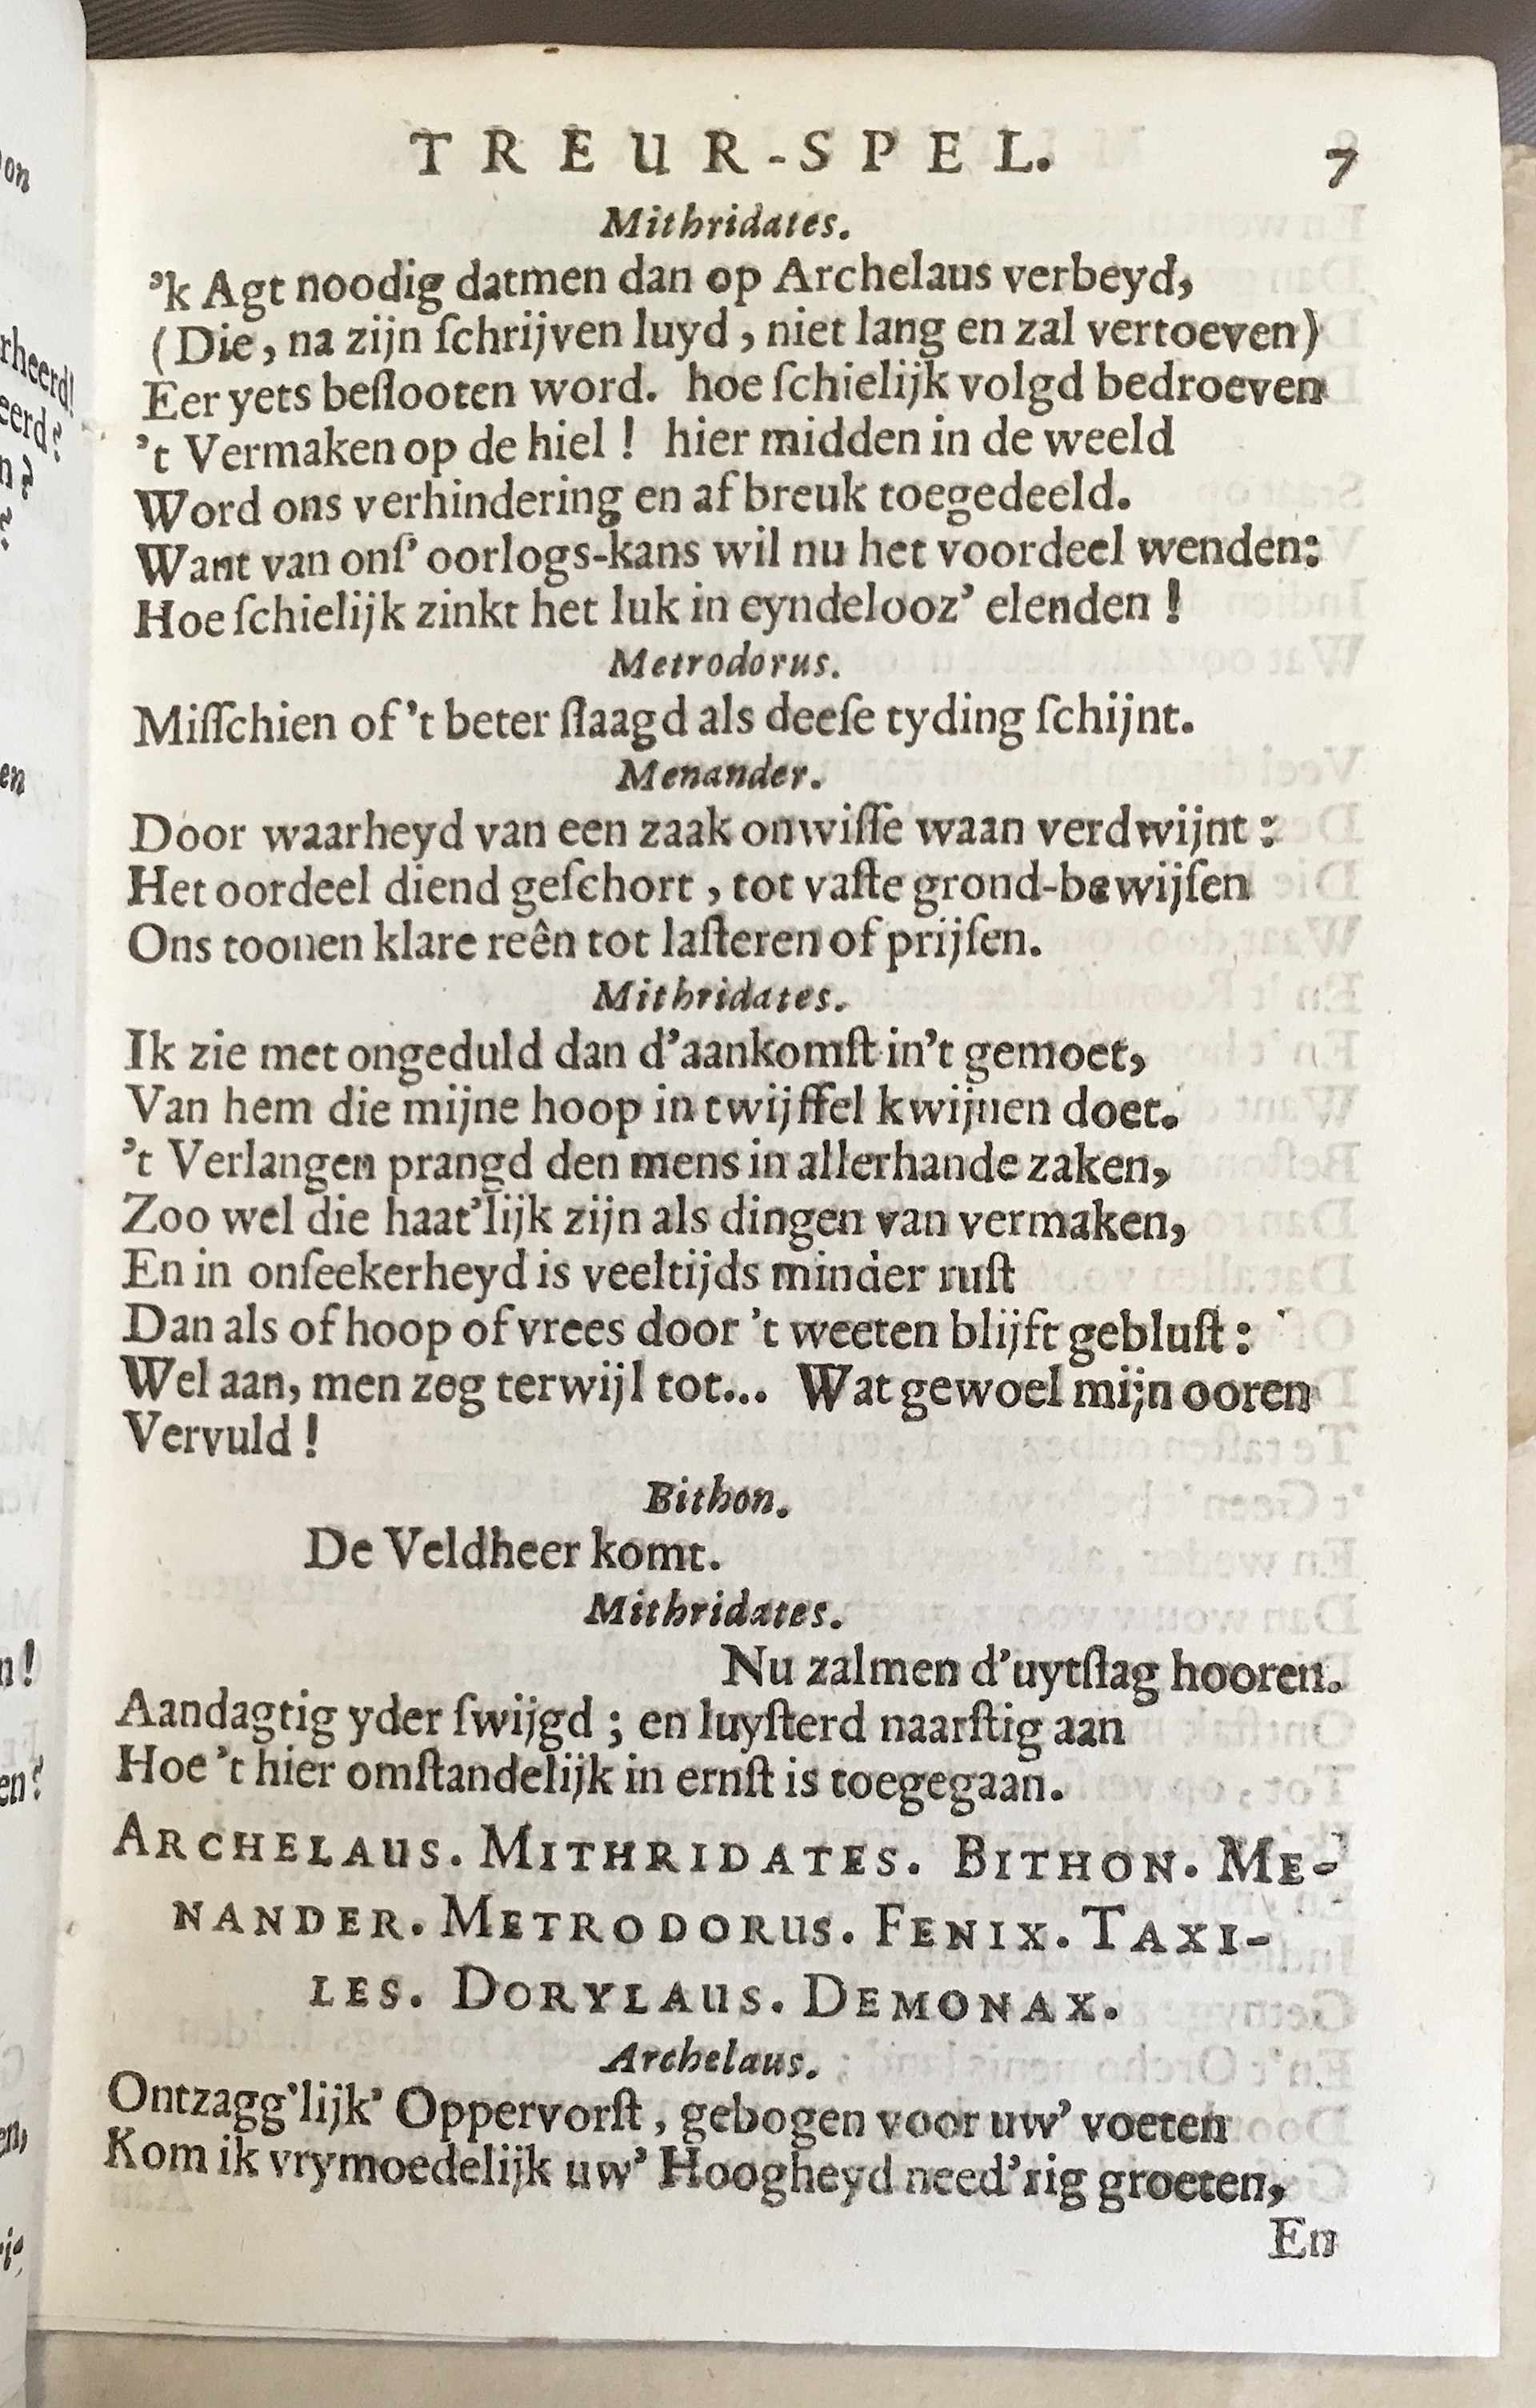 TREUR-SPEL. 7
Mithridates.
’k Agt noodig datmen dan op Archelaus verbeyd,
(Die, na zijn ſchrijven luyd, niet lang en zal vertoeven)
Eer yets beſlooten word. hoe ſchielijk volgd bedroeven
’t Vermaken op de hiel! hier midden in de weeld
Word ons verhindering en afbreuk toegedeeld.
Want van onſ’ oorlogs-kans wil nu het voordeel wenden:
Hoe ſchielijk zinkt het luk in eyndelooz’ elenden!
Metrodorus.
Miſſchien of ’t beter ſlaagd als deeſe tyding ſchijnt.
Menander.
Door waarheyd van een zaak onwiſſe waan verdwijnt:
Het oordeel diend geſchort, tot vaſte grond-bewijſen
Ons toonen klare reên tot laſteren of prijſen.
Mithridates.
Ik zie met ongeduld dan d’aankomſt in’t gemoet,
Van hem die mijne hoop in twijffel kwijnen doet.
’t Verlangen prangd den mens in allerhande zaken,
Zoo wel die haat’lijk zijn als dingen van vermaken,
En in onſeekerheyd is veeltijds minder ruſt
Dan als of hoop of vrees door ’t weeten blijft gebluſt:
Wel aan, men zeg terwijl tot... Wat gewoel mijn ooren
Vervuld!
Bithon.
De Veldheer komt.
Mithridates.
Nu zalmen d’uytſlag hooren.
Aandagtig yder ſwijgd; en luyſterd naarſtig aan
Hoe ’t hier omſtandelijk in ernſt is toegegaan.
ARCHELAUS. MITHRIDATES. BITHON. ME-
NANDER. METRODORUS. FENIX. TAXI-
LES. DORYLAUS. DEMONAX.
Archelaus.
Ontzagg’lijk’ Oppervorſt, gebogen voor uw’ voeten
Kom ik vrymoedelijk uw’ Hoogheyd need’rig groeten,
En